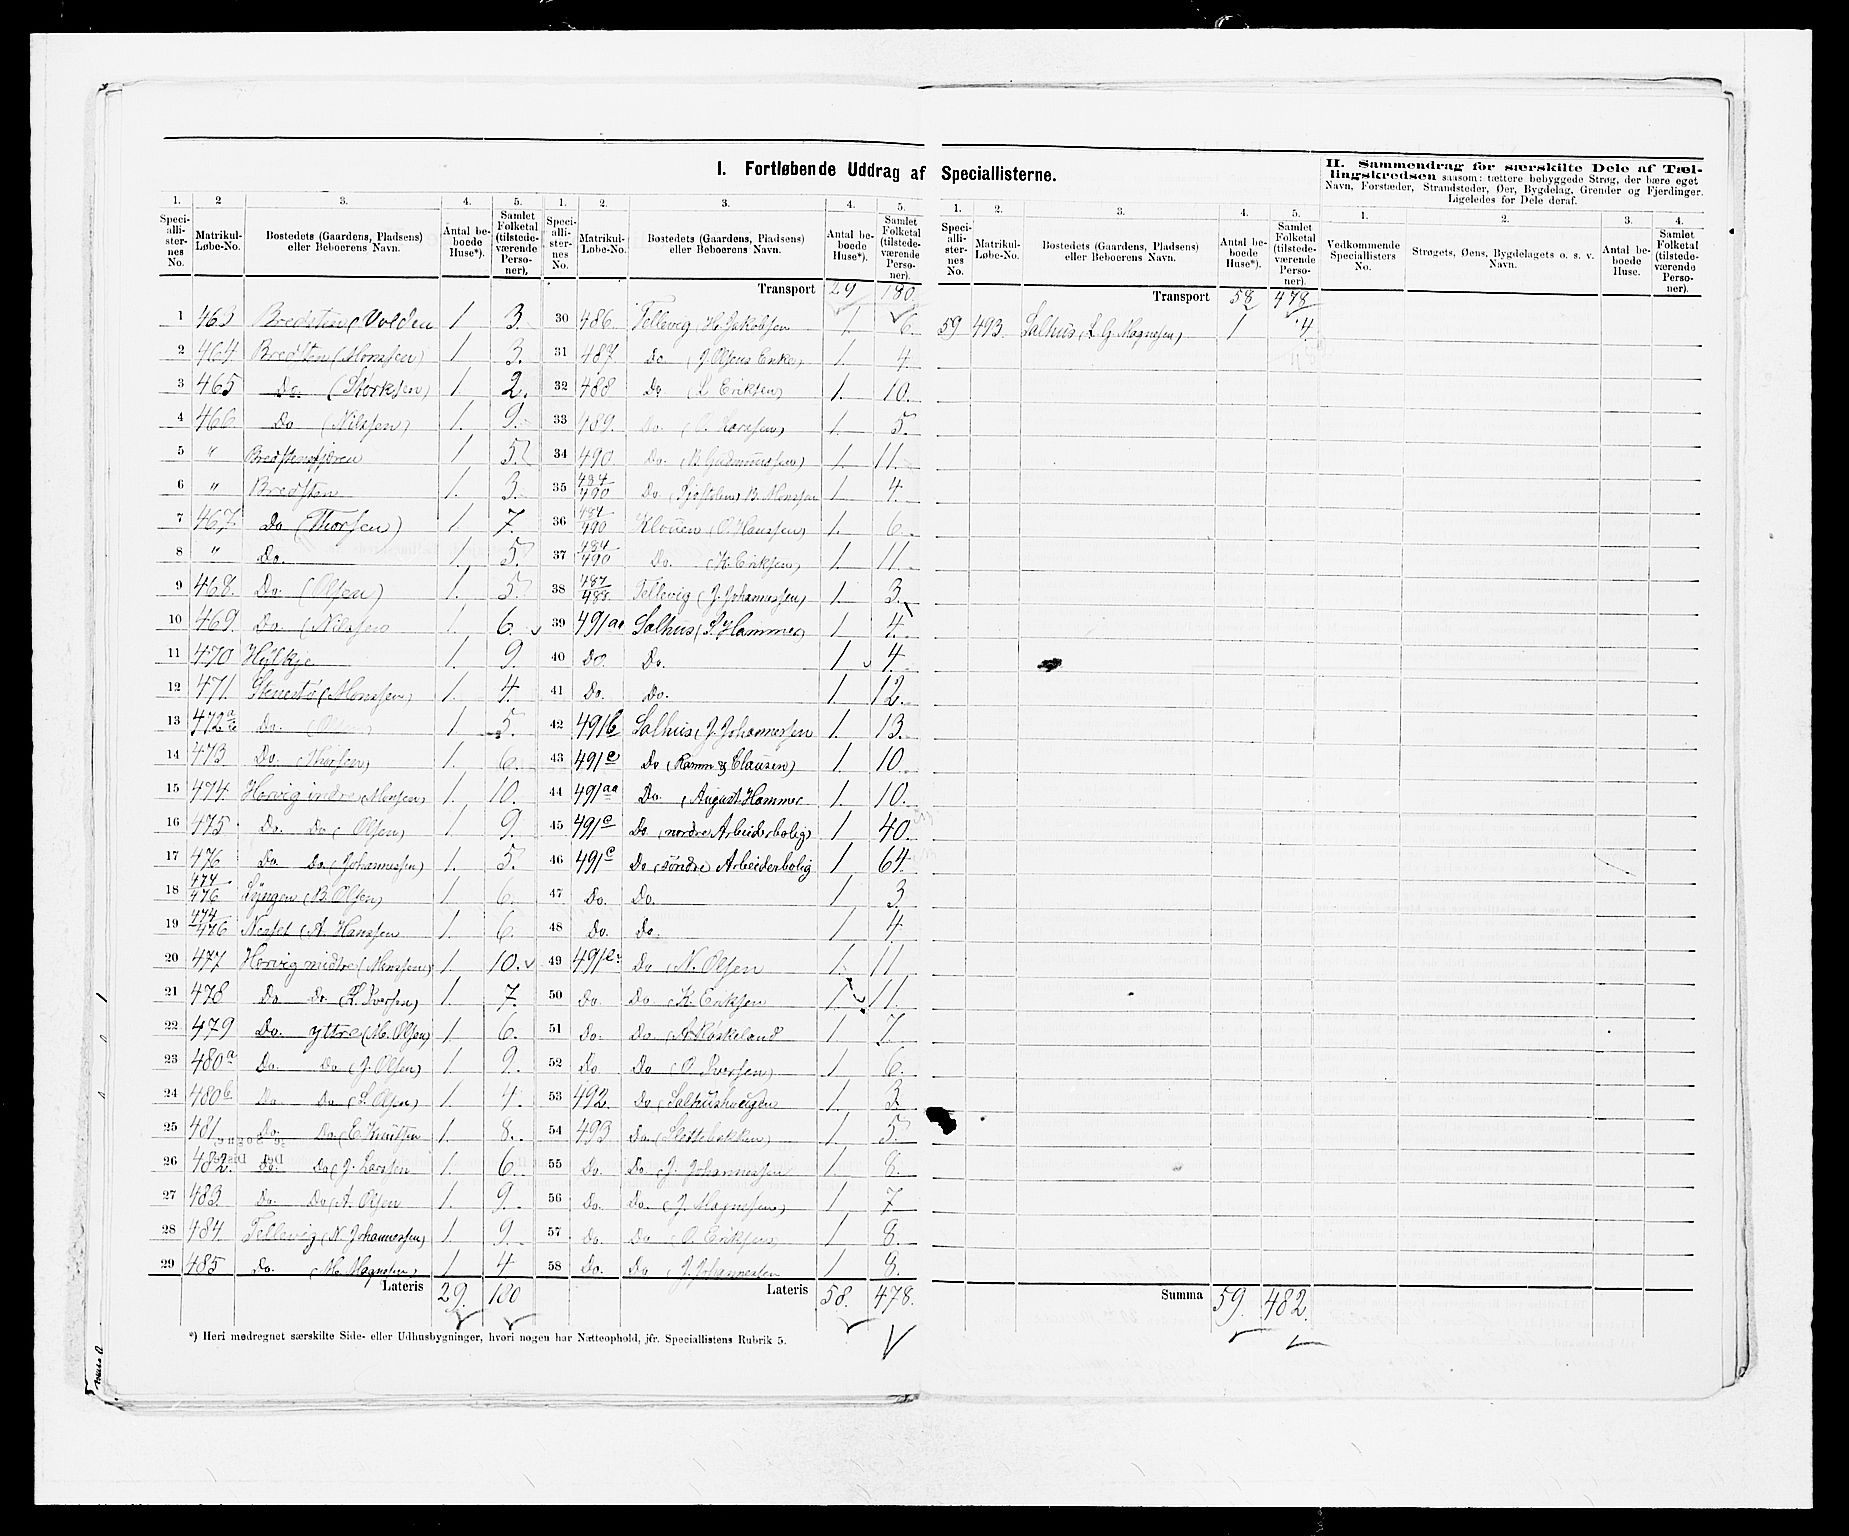 I. Fortløbende Uddrag af Speciallisterne.
II. Sammendrag for særskilte Dele af Tællingskredsen saasom: tættere bebyggede Strøg, der bære eget
Navn, Forstæder, Strandsteder, Øer, Bygdelag, Grender og Fjerdinger.
Ligeledes for Dele deraf.
1. 2 3. 4. 5.
Speciallisternes No. Matrikul-Løbe-No. Bostedets (Gaardens, Pladsens) eller Beboerens Navn. Antal beboede Huse*). Samlet Folketal (tilstedeværende Personer).
1 463 Bredsten (Volden 1 3.
2 464 Bredsten (Monssen) 1 3.
3 465 Do. (Storksen) 1 2.
4 466 Do (Nilssen) 1. 9.
5 " 1 5.
6 " Bredsten 1. 3.
7 467. Do (Thorsen) 1 7.
8 " Do. 1. 5.
9 468. Do. (Olsen) 1. 5.
10 469. Do. (Nilssen 1. 6.
11 470 Hylkje 1. 9.
12 471. Stenestø (Monssen) 1. 4.
13 472 Do. 1 5.
14 473 Do. (Thorsen) 1. 6.
15 474. Hørvig indre (Monsen) 1. 10.
16 475. Do. Do (Olsen) 1. 9.
17 476 Do Do. (Johannessen) 1. 5.
18 474/476 Lyngen (B. Olsen) 1. 6.
19 474/476 Nesset (A. Hanssen 1. 6.
20 477 Hørvig midtre (Monssen) 1. 10.
21 478 Do Do (L. Iversen) 1. 7.
22 479 Do. ytre (M. Olsen) 1. 6.
23 480a Do. Do (J. Olsen) 1. 9.
24 480b. Do. Do (L. Olsen) 1. 4.
25 481. Do. Do (E. Knutsen 1. 8.
26 482. Do. Do (J. Larssen 1. 6.
27 483. Do. Do (A. Olsen 1. 9.
28 484. Tellevig (N. Johannessen) 1. 9.
29 485. Do. (M. Magnesen) 1 4
Lateris 29. 180
1. 2. 3. 4. 5.
Speciallisternes No. Matrikul-Løbe-No. Bostedets (Gaardens, Pladsens) eller Beboerens Navn. Antal beboede Huse*). Samlet Folketal (tilstedeværende Personer).
Transport 29 180.
30 486. Tellevig (H. Jakobsen 1 6.
31 487. Do (J. Olsens Enke) 1. 4.
32 488 Do (L. Eriksen) 1. 10.
33 489. Do. (O. Larssen) 1. 5.
34 490 Do. (B. Gudmundssen) 1. 11.
35 484/490 Do B. Monssen 1. 4.
36 484/490 Klouen (O. Hanssen) 1. 6.
37 484/490 Do. (K. Eriksen) 1. 11.
38 487/488. Tellevig (J. Johannessen) 1. 3.
39 491aa Salhus (P. Hammer) 1 4.
40 Do. Do. 1 4.
41 Do. Do. 1 12.
42 491b Salhus (J. Johannessen 1. 13.
43 491c Do (Ramm & Clausen) 1. 10.
44 491aa Do. (August Hammer 1. 10.
45 491c Do (nordre Arbeiderbolig) 1 40.
46 491c Do (søndre Arbeiderbolig 1 64.
47 Do. Do. 1 3
48 Do. Do. 1 4.
49 491 Do (N. Olsen 1. 11
50 Do. Do (K. Eriksen 1 11.
51 Do. Do (A. Kløskeland 1 7.
52 Do Do (O. Iversen) 1 6.
53 492. Do (Salhushougen 1. 3.
54 493 Do. (Slettebakken) 1. 5.
55 Do. Do (J. Johannessen 1. 8.
56 Do. Do. (J. Magnessen) 1 7
57 Do. Do (O. Eriksen) 1 8.
58 Do. Do (J. Johannessen 1 8.
Lateris 58. 478.
*) Heri medregnet særskilte Side- eller Udhusbygninger, hvori nogen har Natteophold, jfr. Speciallistens Rubrik 5.
1. 2. 3. 4. 5.
Speciallisternes No. Matrikul-Løbe-No. Bostedets (Gaardens, Pladsens) eller Beboerens Navn. Antal beboede Huse*). Samlet Folketal (tilstedeværende Personer).
Transport 58 478
59 493. Salhus (L. G. Magnesen) 1 4.
Summa 59. 482.
1. 2. 3. 4.
Vedkommende Speciallisters No. Strøgets, Øens, Bygdelagets o. s. v. Navn. Antal beboede Huse. Samlet Folketal (tilstedeværende Personer).